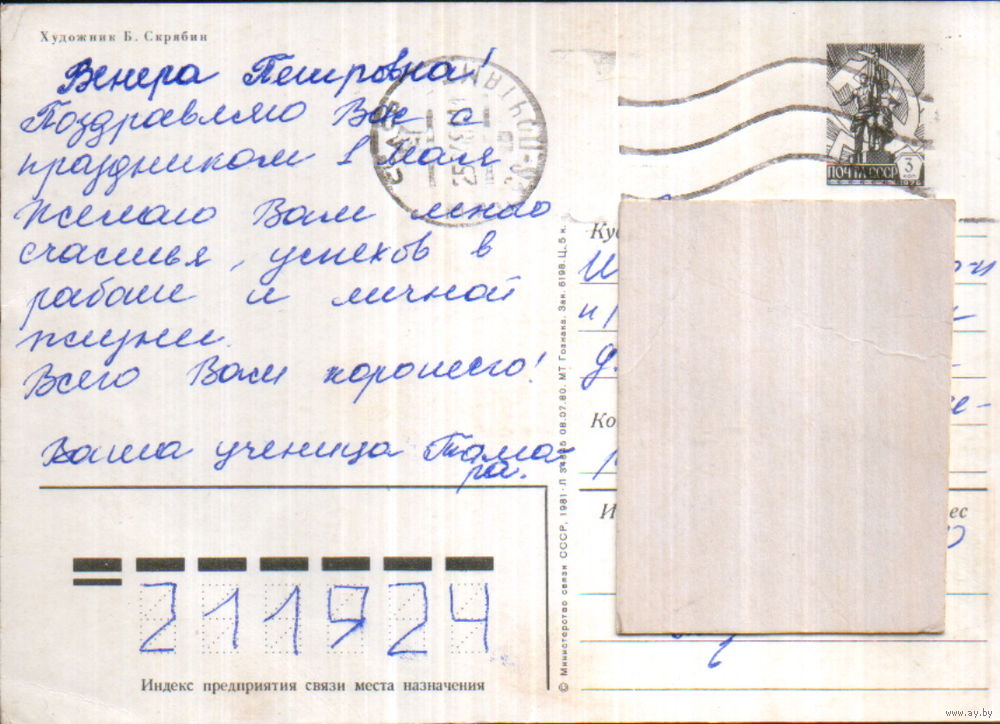 Художник Б. Скрябин
Венера Петровна!
Поздравляю Вас с
праздником 1 мая
Желаю Вам много
счастья, успехов в
работе и личной
жизни.
Всего Вам хорошего!
Ваша ученица Тама-
ра.
211924
Индекс предприятия связи места назначения
ПОЧТА СССР 3 КОП 1976
Ку
Ко
И
ес
© Министерство связи СССР, 1981. Л 08.07.80. МТ Гознака. Зак. 6198. Ц. 5 к.
www.ay.by